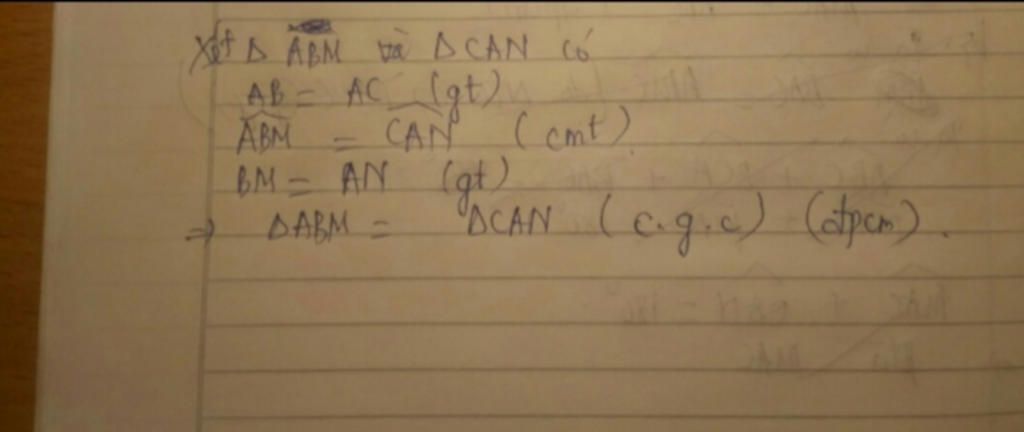 Xét Δ ABM và Δ CAN có
AB = AC (gt)
ABM = CAN (cmt).
BM = AN (gt)
⇒ ΔABM = ΔCAN (c.g.c) (đpcm).